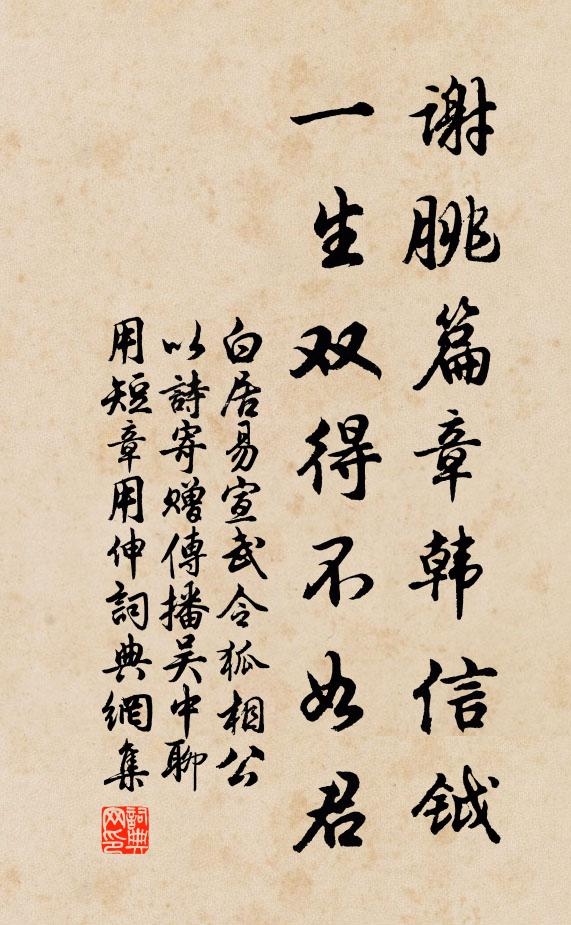 谢朓篇章韩信钺
一生双得不如君
白居易宣武令狐相公
以詩寄赠傳播吴中聊
用短章用伸詞典網集
詞典
网印